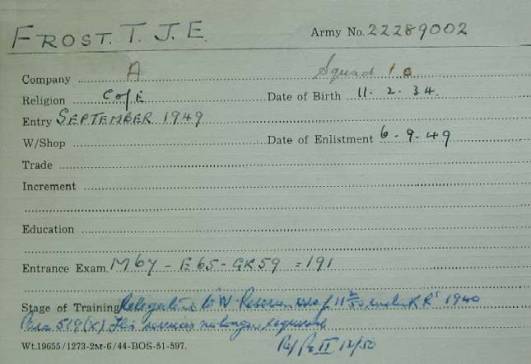 FROST. T. J. E. Army No. 22289002
Company A Squad 10
Religion C of E Date of Birth 11. 2. 34.
Entry SEPTEMBER 1949
W/Shop Date of Enlistment 6-9-49
Trade
Increment
Education
Entrance Exam. M67 - E65 - GK59 = 191
Stage of Training Relegation to W Reserve 1940
Para 519(X) His services no longer required
Wt.19655/1273-2M-6/44-BOS-51-597. II 12/50